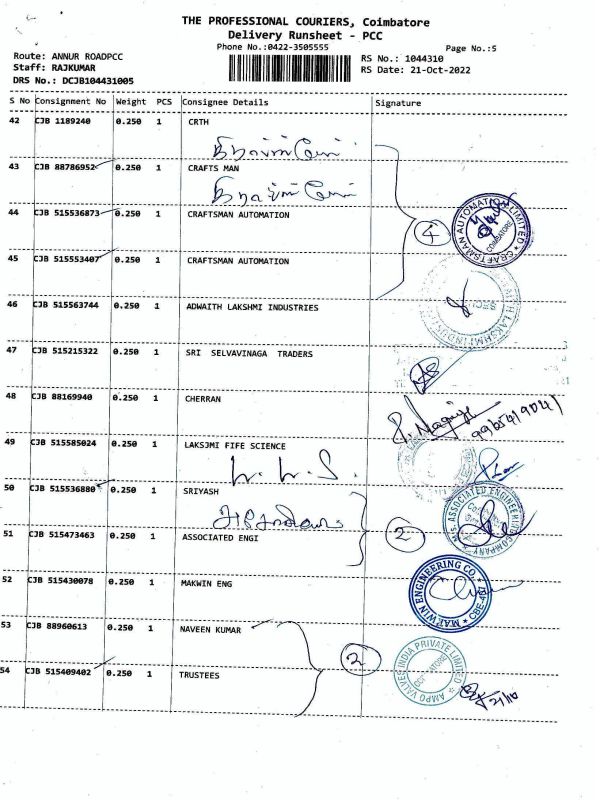 THE PROFESSIONAL COURIERS, Coimbatore
Delivery Runsheet - PCC
Phone No.:0422-3505555
Page No.:5
Route: ANNUR ROADPCC
RS No.: 1044310
Staff: RAJKUMAR
RS Date: 21-Oct-2022
DRS No.: DCJB104431005
S No Consignment No Weight PCS Consignee Details Signature
42 CJB 1189240 0.250 1 CRTH
43 CJB 88786952 0.250 1 CRAFTS MAN
44 CJB 515536873 0.250 1 CRAFTSMAN AUTOMATION
CRAFTSMAN AUTOMATION LIMITED
COIMBATORE
4
45 CJB 515553407 0.250 1 CRAFTSMAN AUTOMATION
46 CJB 515563744 0.250 1 ADWAITH LAKSHMI INDUSTRIES
47 CJB 515215322 0.250 1 SRI SELVAVINAGA TRADERS
48 CJB 88169940 0.250 1 CHERRAN
49 CJB 515585024 0.250 1 LAKSJMI FIFE SCIENCE
50 CJB 515536880 0.250 1 SRIYASH
M/s. ASSOCIATED ENGINEERING COMPANY
2
51 CJB 515473463 0.250 1 ASSOCIATED ENGI
52 CJB 515430078 0.250 1 MAKWIN ENG
53 CJB 88960613 0.250 1 NAVEEN KUMAR
2
AMPO VALVES INDIA PRIVATE LIMITED
54 CJB 515409402 0.250 1 TRUSTEES
21/10